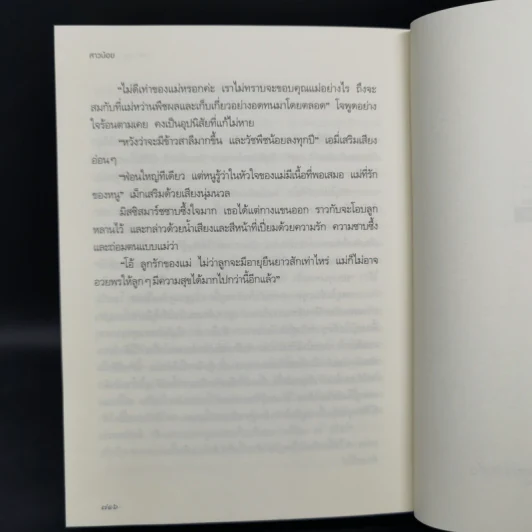 สาวน้อย
"ไม่ดีเท่าของแม่หรอกค่ะ เราไม่ทราบจะขอบคุณแม่อย่างไร ถึงจะ
สมกับที่แม่หว่านพืชผลและเก็บเกี่ยวอย่างอดทนมาโดยตลอด" โจพูดอย่าง
ใจร้อนตามเคย คงเป็นอุปนิสัยที่แก้ไม่หาย
"หวังว่าจะมีข้าวสาลีมากขึ้น และวัชพืชน้อยลงทุกปี" เอมี่เสริมเสียง
อ่อนๆ
"ฟ่อนใหญ่ทีเดียว แต่หนูรู้ว่าในหัวใจของแม่มีเนื้อที่พอเสมอ แม่ที่รัก
ของหนู" เม็กเสริมด้วยเสียงนุ่มนวล
มิสซิสมาร์ชซาบซึ้งใจมาก เธอได้แต่กางแขนออก ราวกับจะโอบลูก
หลานไว้ และกล่าวด้วยน้ำเสียงและสีหน้าที่เปี่ยมด้วยความรัก ความซาบซึ้ง
และถ่อมตนแบบแม่ว่า
"โอ้ ลูกรักของแม่ ไม่ว่าลูกจะมีอายุยืนยาวสักเท่าไหร่ แม่ก็ไม่อาจ
อวยพรให้ลูกๆ มีความสุขได้มากไปกว่านี้อีกแล้ว"
๗๒๖